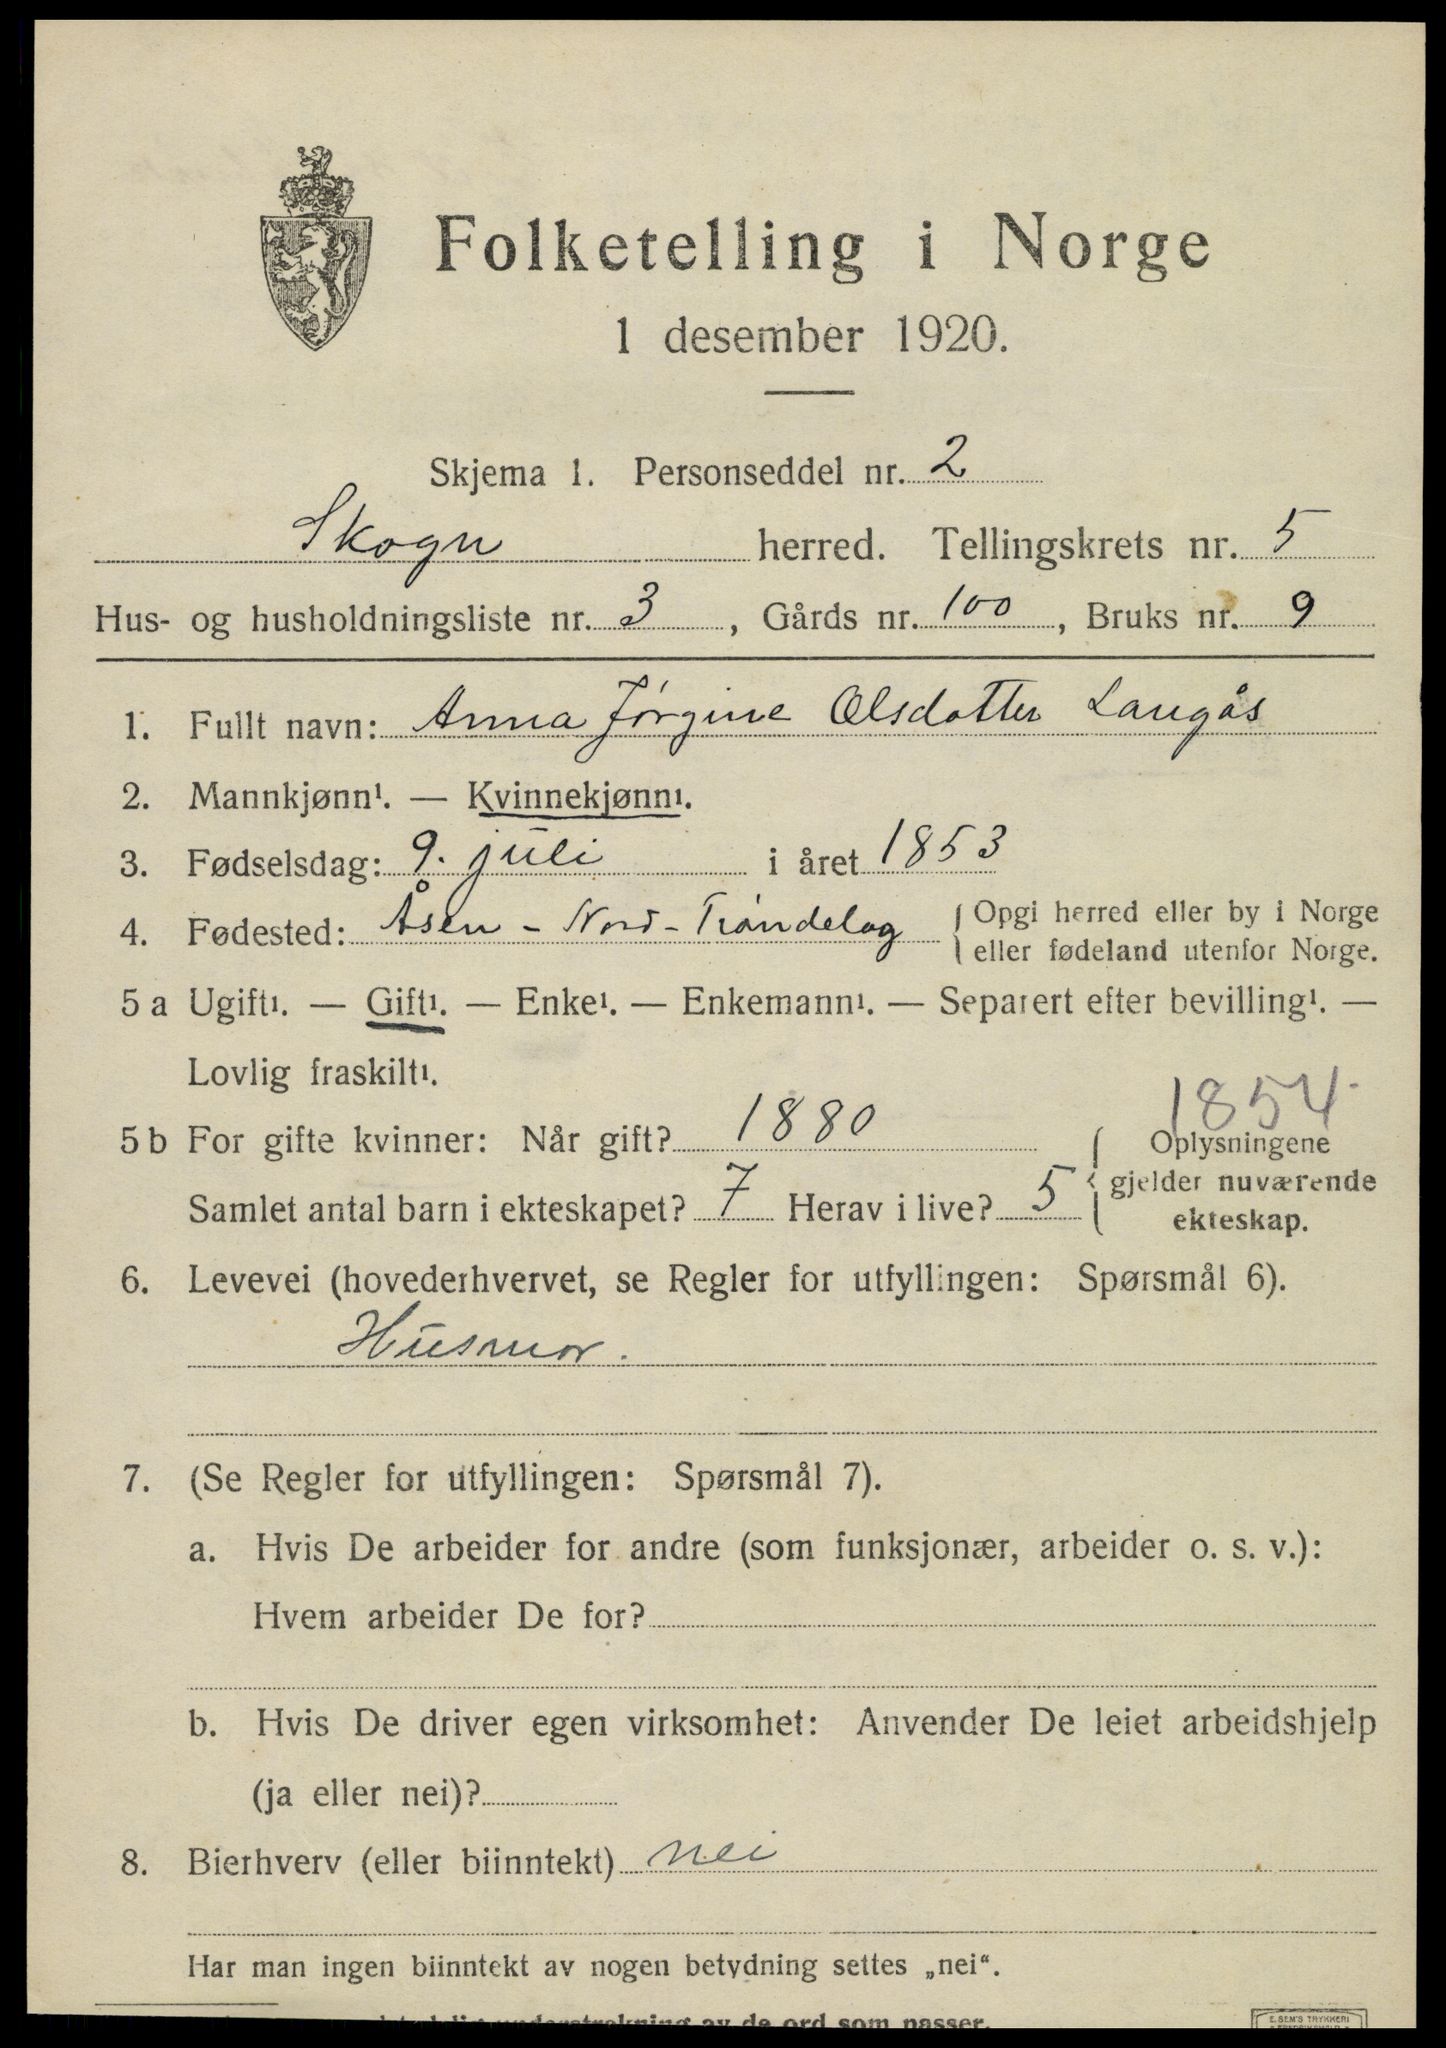 Folketelling i Norge
1 desember 1920.
Skjema 1. Personseddel nr. 2
Skogn herred. Tellingskrets nr. 5
Hus- og husholdningsliste nr. 3, Gårds nr. 100, Bruks nr. 9
1. Fullt navn: Anna Jørgine Olsdatter Langås
2. Mannkjønn¹. — Kvinnekjønn¹.
3. Fødselsdag: 9. juli i året 1853
4. Fødested: Åsen - Nord-Trøndelag { Opgi herred eller by i Norge
eller fødeland utenfor Norge.
5 a Ugift¹. — Gift¹. — Enke¹. — Enkemann¹. — Separert efter bevilling¹. —
Lovlig fraskilt¹.
1854
5 b For gifte kvinner: Når gift? 1880 { Oplysningene
Samlet antal barn i ekteskapet? 7 Herav i live? 5 gjelder nuværende
ekteskap.
6. Levevei (hovederhvervet, se Regler for utfyllingen: Spørsmål 6).
Husmor.
7. (Se Regler for utfyllingen: Spørsmål 7).
a. Hvis De arbeider for andre (som funksjonær, arbeider o. s. v.):
Hvem arbeider De for?
b. Hvis De driver egen virksomhet: Anvender De leiet arbeidshjelp
(ja eller nei)?
8. Bierhverv (eller biinntekt) nei
Har man ingen biinntekt av nogen betydning settes „nei“.
understrekning av de ord som passer.
E. SEM'S TRYKKERI